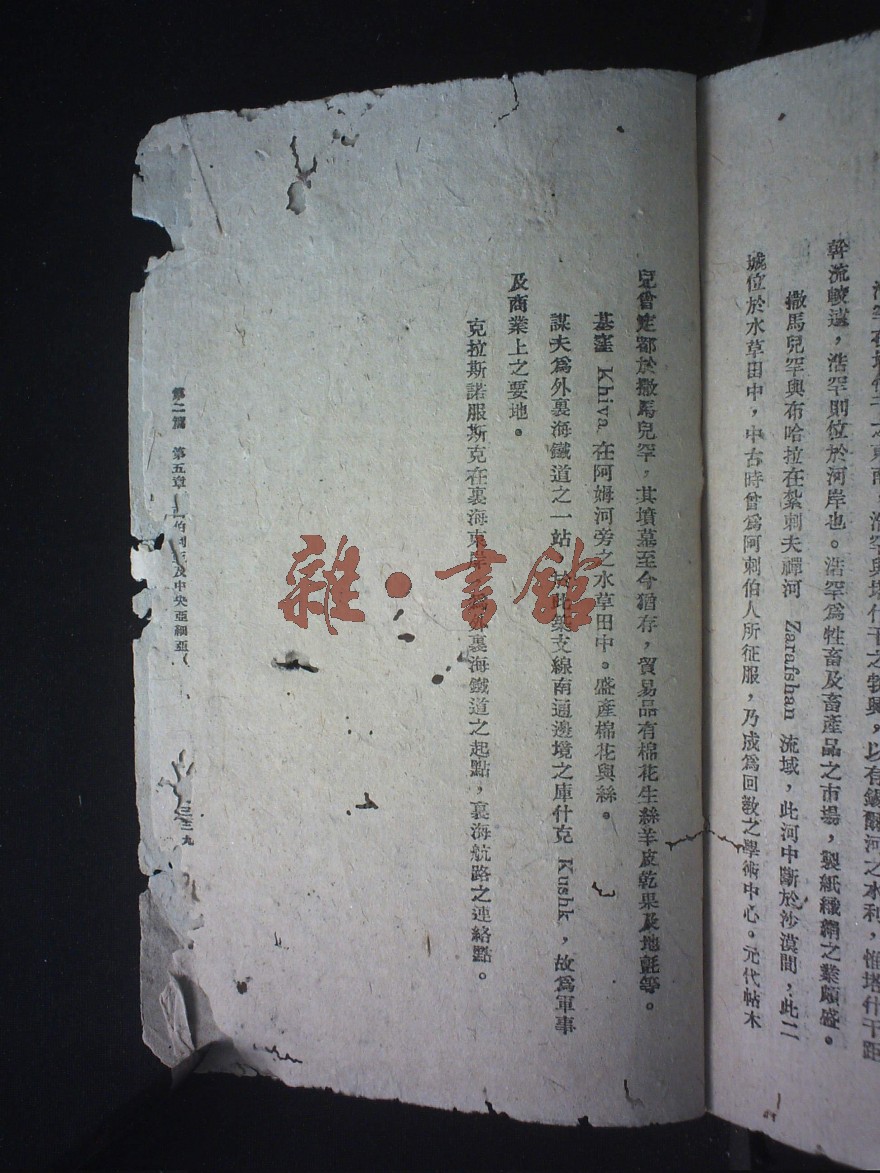 浩罕在塔什干之東南，浩罕與塔什干之勃興，以有錫爾河之水利，惟塔什干距
幹流較遠，浩罕則位於河岸也。浩罕爲牲畜及畜產品之市場，製紙織綢之業頗盛。
撒馬兒罕與布哈拉在紮剌夫禪河 Zarafshan 流域，此河中斷於沙漠間，此二
城位於水草田中，中古時曾爲阿剌伯人所征服，乃成爲回敎之學術中心。元代帖木
兒曾定都於撒馬兒罕，其墳墓至今猶存，貿易品有棉花生絲羊皮乾果及地氈等。
基窪 Khiva 在阿姆河旁之水草田中。盛產棉花與絲。
謀夫爲外裏海鐵道之一站 於此築支線南通邊境之庫什克 Kushk，故爲軍事
及商業上之要地。
克拉斯諾服斯克在裏海東岸 爲外裏海鐵道之起點，裏海航路之連絡點。
第二篇 第五章 伯利亞及中央亞細亞
二三九
雜·書館